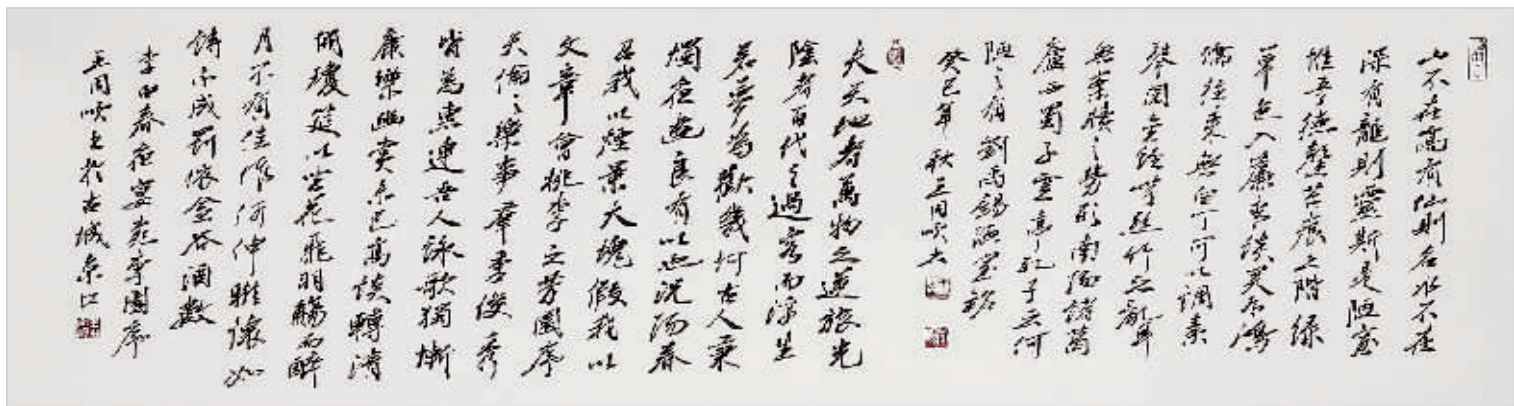 山不在高有仙則名水不在
深有龍則靈斯是陋室
惟吾德馨苔痕上階綠
草色入簾青談笑有鴻
儒往來無白丁可以調素
琴閱金經無絲竹之亂耳
無案牘之勞形南陽諸葛
廬西蜀子雲亭孔子云何
陋之有劉禹錫陋室銘
癸巳年秋王同
夫天地者萬物之逆旅光
陰者百代之過客而浮生
若夢為歡幾何古人秉
燭夜遊良有以也況陽春
召我以煙景大塊假我以
文章會桃李之芳園序
天倫之樂事群季俊秀
皆為惠連吾人詠歌獨慚
康樂幽賞未已高談轉清
開瓊筵以坐花飛羽觴而醉
月不有佳作何伸雅懷如
詩不成罰依金谷酒數
李白春夜宴桃李園序
王同於古城京口